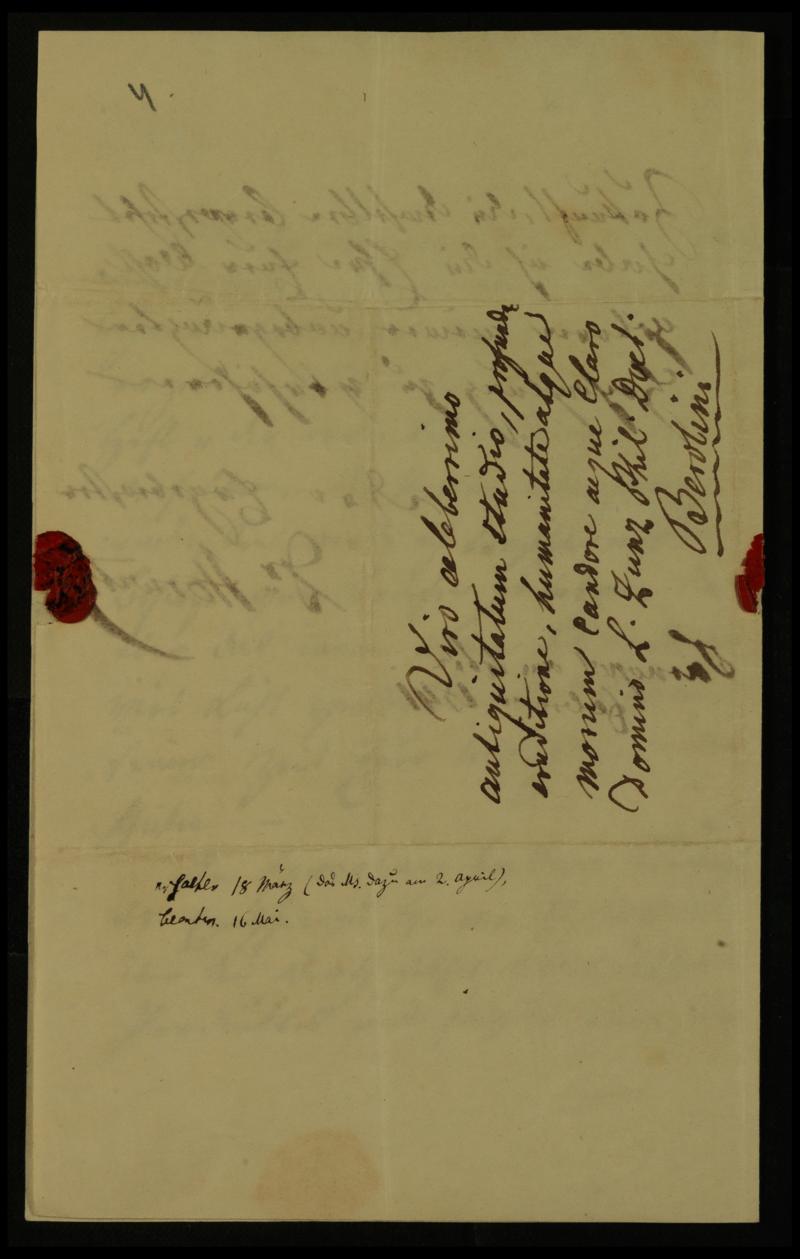 4.
Viro celeberrimo
antiquitatum studio, profunda
eruditione, humanitate atque
morum Candore aeque Claro
Domino L. Zunz Phil. Doct.
Berolini
erhalten 18 März (das Ms. dazu am 2. April),
beantw. 16 Mai.